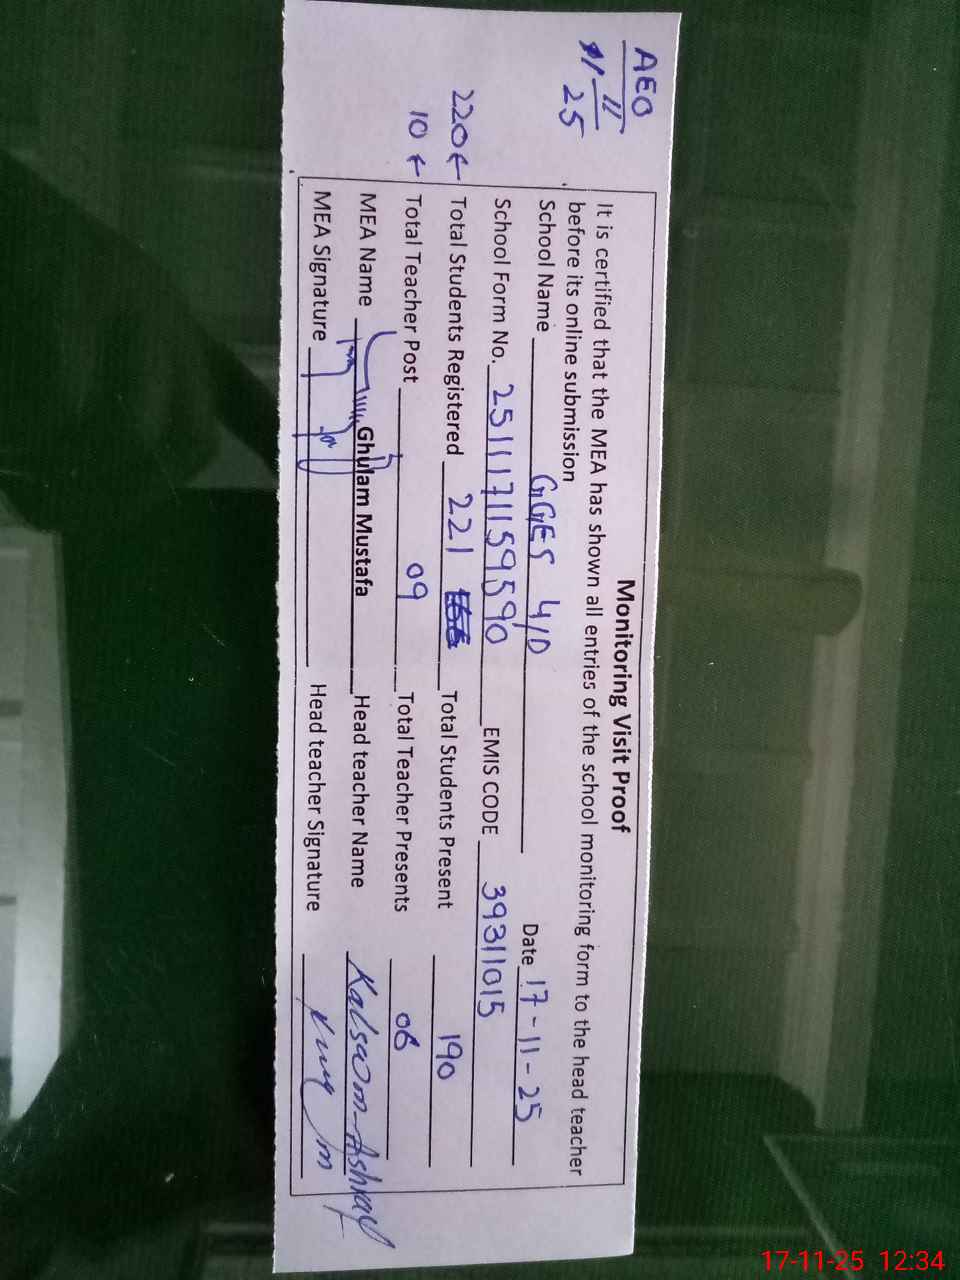 AEO
11
25
Monitoring Visit Proof
It is certified that the MEA has shown all entries of the school monitoring form to the head teacher
before its online submission
School Name GGES 4/D Date 17-11-25
School Form No. 2511171159590 EMIS CODE 39311015
220 ← Total Students Registered 221 Total Students Present 190
10 ← Total Teacher Post 09 Total Teacher Presents 06
MEA Name Ghulam Mustafa Head teacher Name Kalsoom Ashraf
MEA Signature Head teacher Signature
17-11-25 12:34